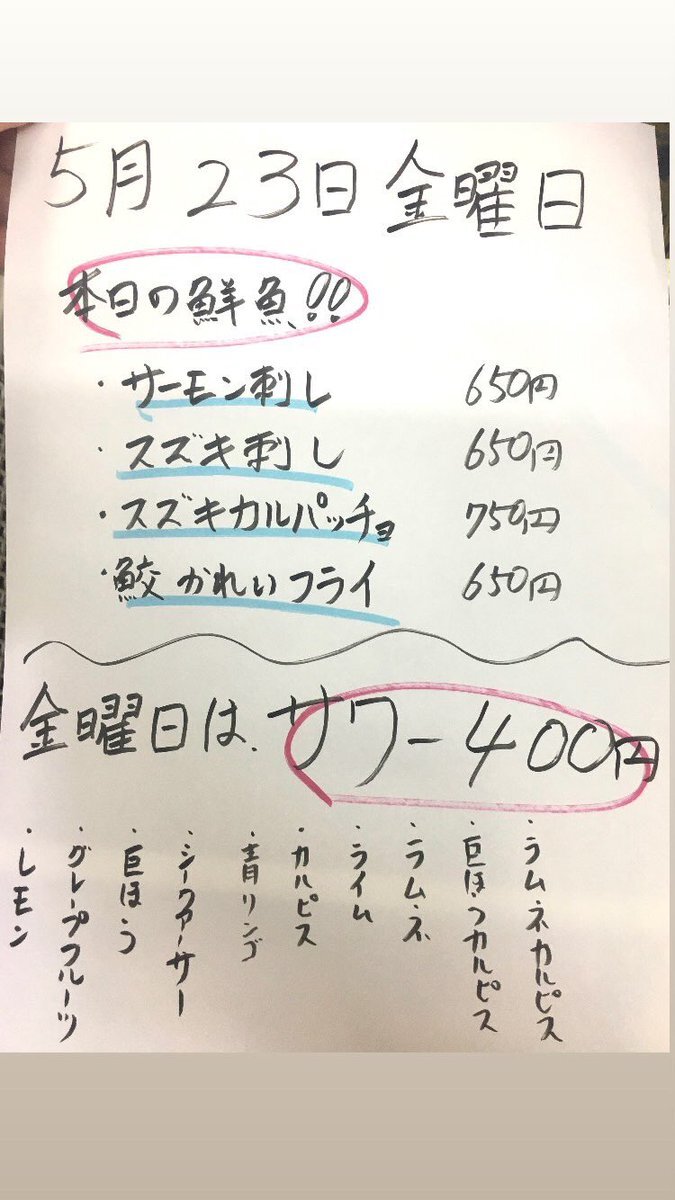 5月23日金曜日
本日の鮮魚!!
・サーモン刺し 650円
・スズキ刺し 650円
・スズキカルパッチョ 750円
・鮫かれいフライ 650円
金曜日は、サワー400円
・ラムネカルピス
・巨ほうカルピス
・ラムネ
・ライム
・カルピス
・青リンゴ
・シークァーサー
・巨ほう
・グレープフルーツ
・レモン